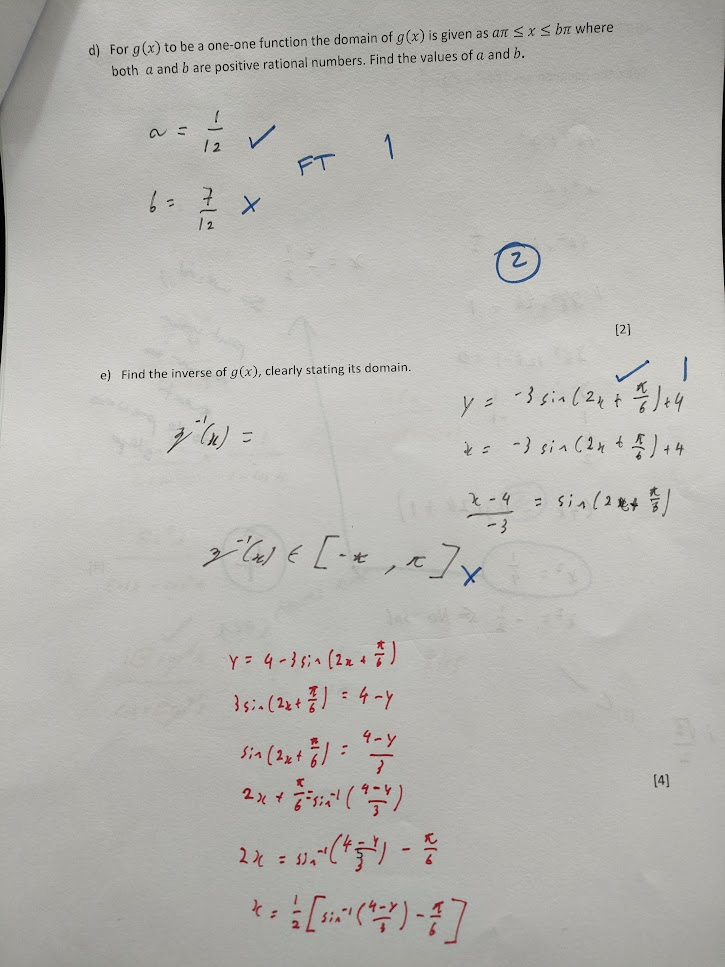 d) For g(x) to be a one-one function the domain of g(x) is given as aπ ≤ x ≤ bπ where
both a and b are positive rational numbers. Find the values of a and b.
a = 1/12 ✓
FT 1
b = 7/12 ×
2
[2]
e) Find the inverse of g(x), clearly stating its domain.
✓ 1
y = -3 sin(2x + π/6) + 4
g⁻¹(x) =
x = -3 sin(2x + π/6) + 4
(x - 4)/-3 = sin(2x + π/6)
g⁻¹(x) ∈ [-π, π] ×
y = 4 - 3 sin(2x + π/6)
3 sin(2x + π/6) = 4 - y
sin(2x + π/6) = (4 - y)/3
[4]
2x + π/6 = sin⁻¹((4 - y)/3)
2x = sin⁻¹((4 - y)/3) - π/6
x = 1/2 [sin⁻¹((4 - y)/3) - π/6]